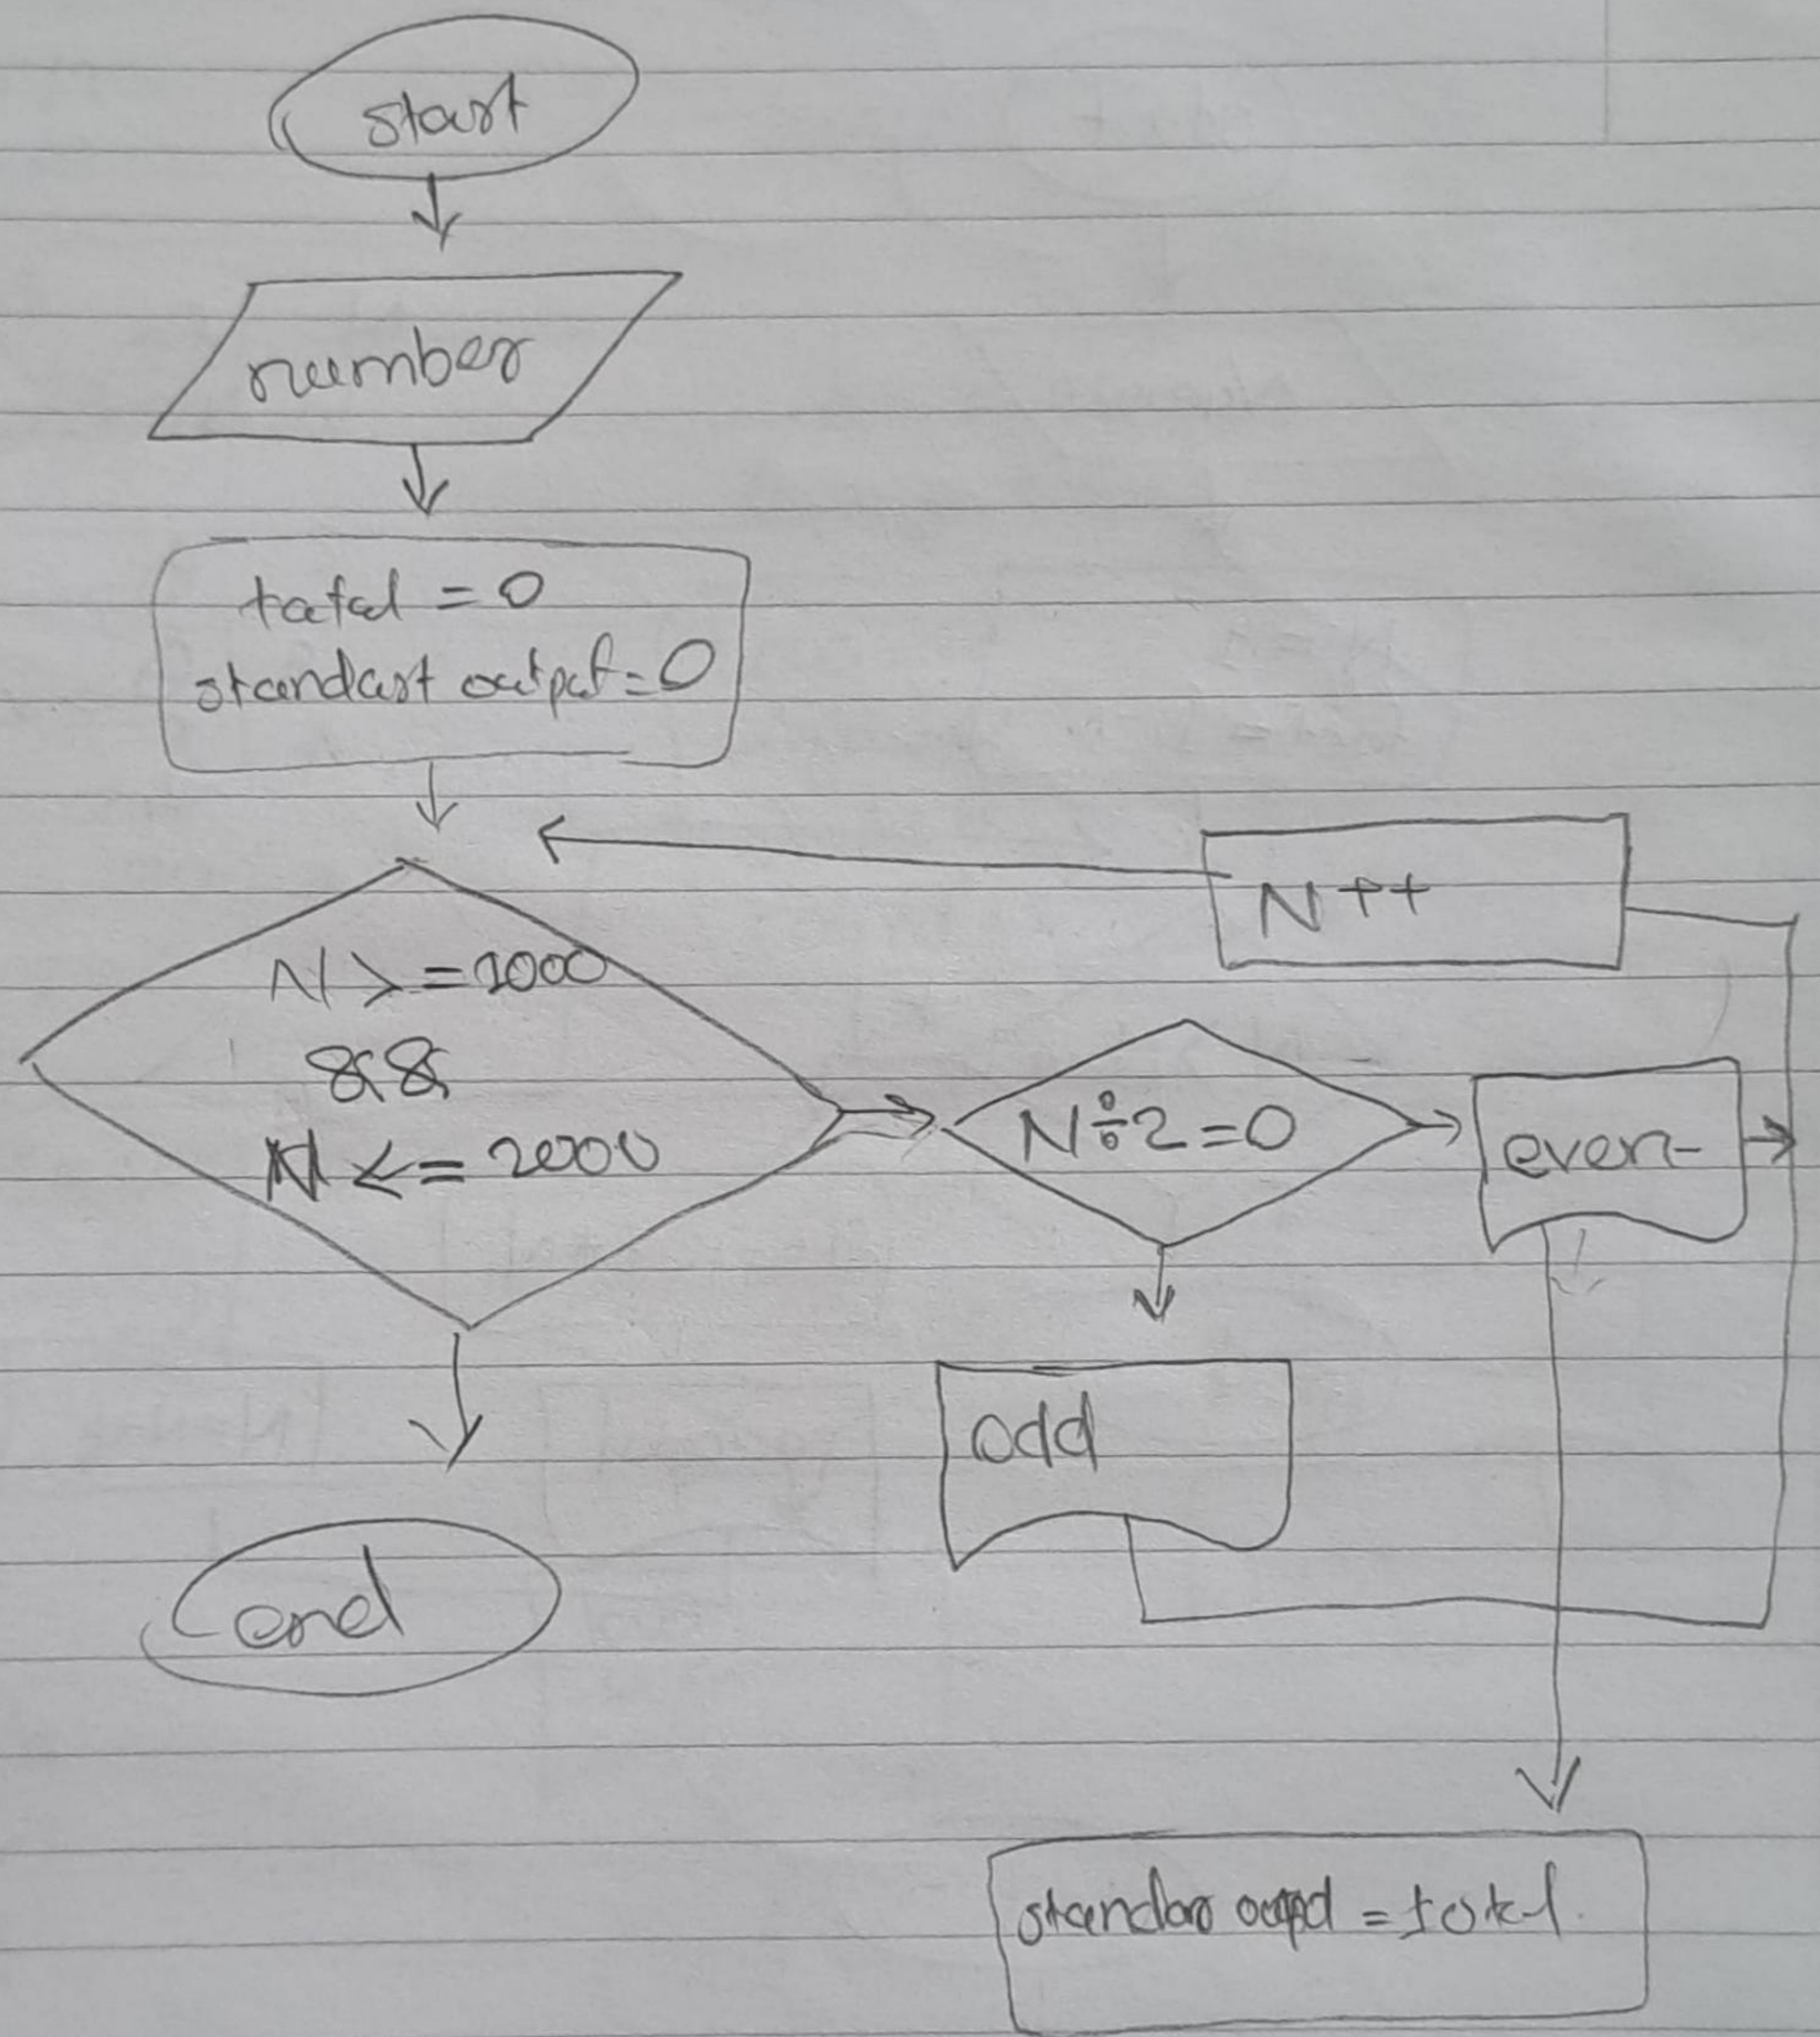 start
number
tatal = 0
standart output = 0
N++
N >= 1000
&&
N <= 2000
N÷2=0
even
odd
end
standar = total